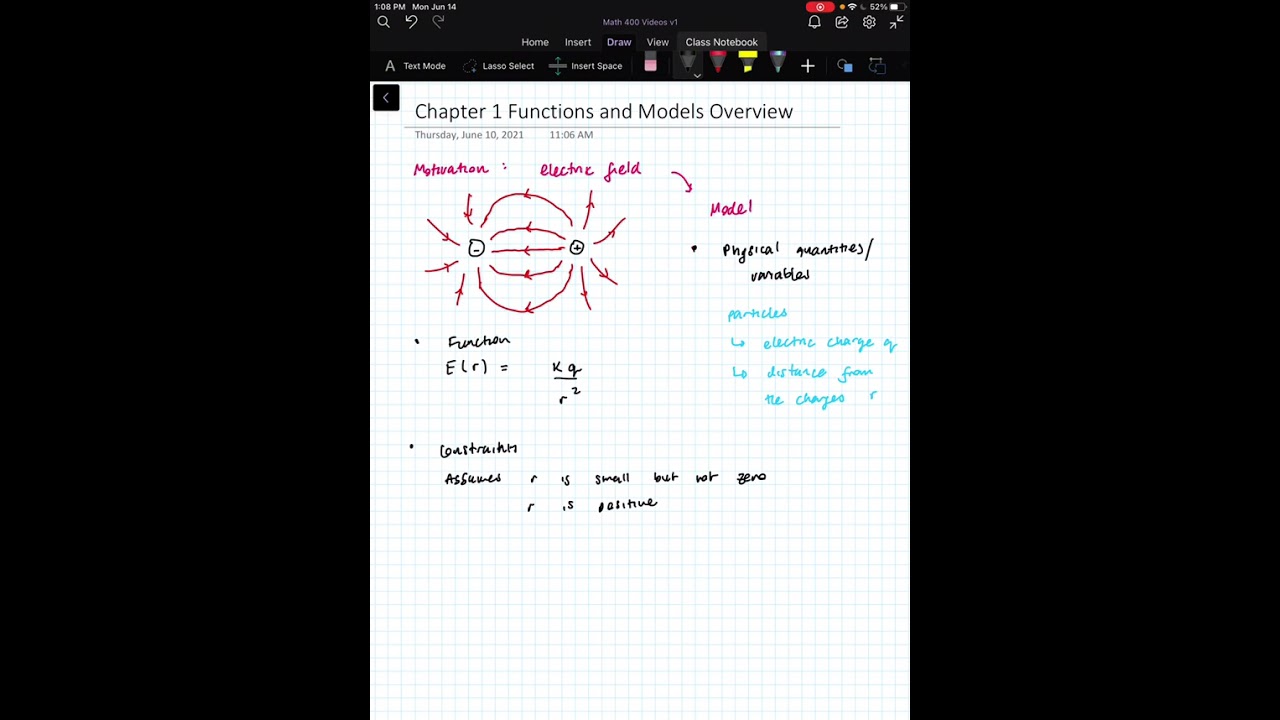 1:08 PM Mon Jun 14
52%
Math 400 Videos v1
Home Insert Draw View Class Notebook
A Text Mode Lasso Select Insert Space
Chapter 1 Functions and Models Overview
Thursday, June 10, 2021 11:06 AM
Motivation : electric field
Model
• Physical quantities/
variables
particles
↳ electric charge q
↳ distance from
the charges r
- +
• Function
E(r) = kq
r²
• Constraints
Assumes r is small but not zero
r is positive